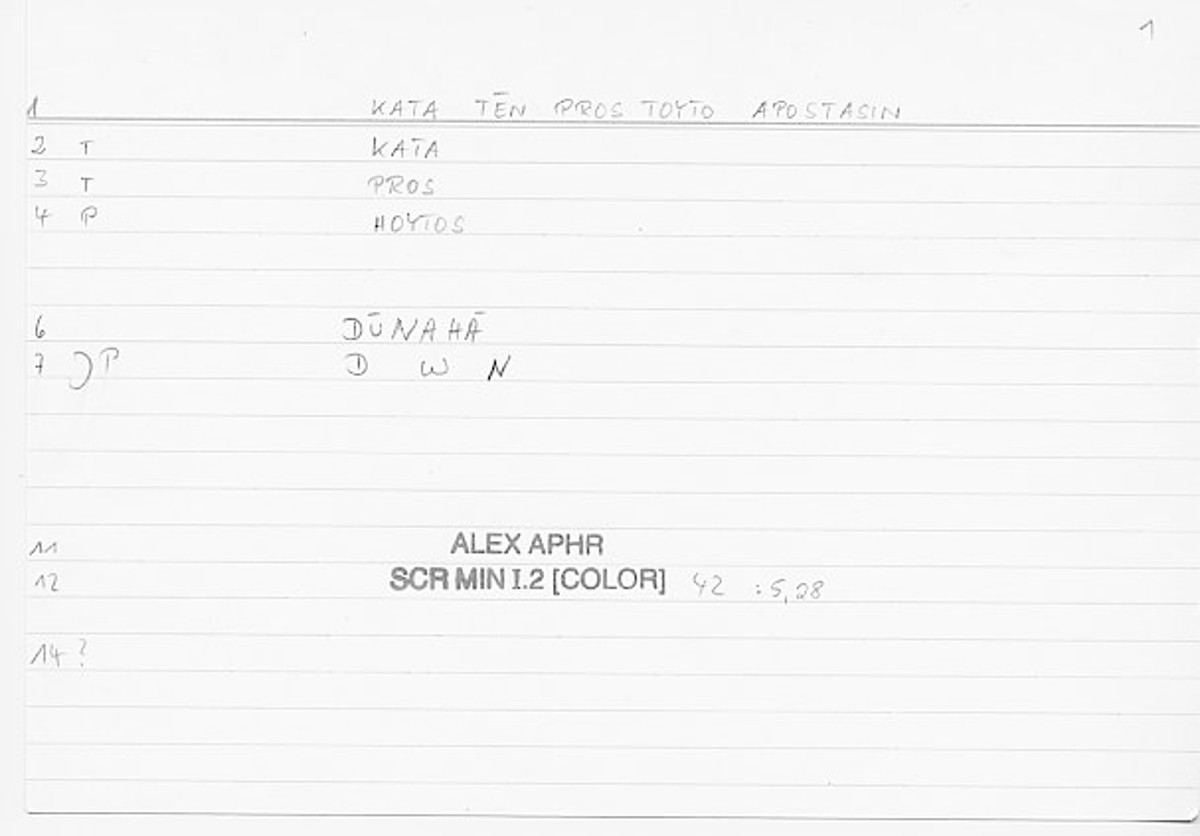 1
1 KATA TĒN PROS TOYTO APOSTASIN
2 T KATA
3 T PROS
4 P HOYTOS
6 DŪNAHĀ
7 P D W N
11 ALEX APHR
12 SCR MIN I.2 [COLOR] 42 :5,28
14 ?